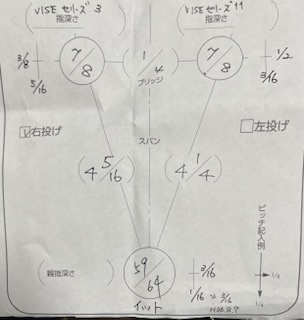 VISE セリーズ 3
VISE セリーズ 11
指深さ
指深さ
3/8
7/8
1/4
7/8
1/2
5/16
ブリッジ
3/16
☑右投げ
スパン
□左投げ
(4 5/16)
(4 1/4)
ピッチ記入例
(親指深さ )
59/64
3/16
1/16
3/16
イット